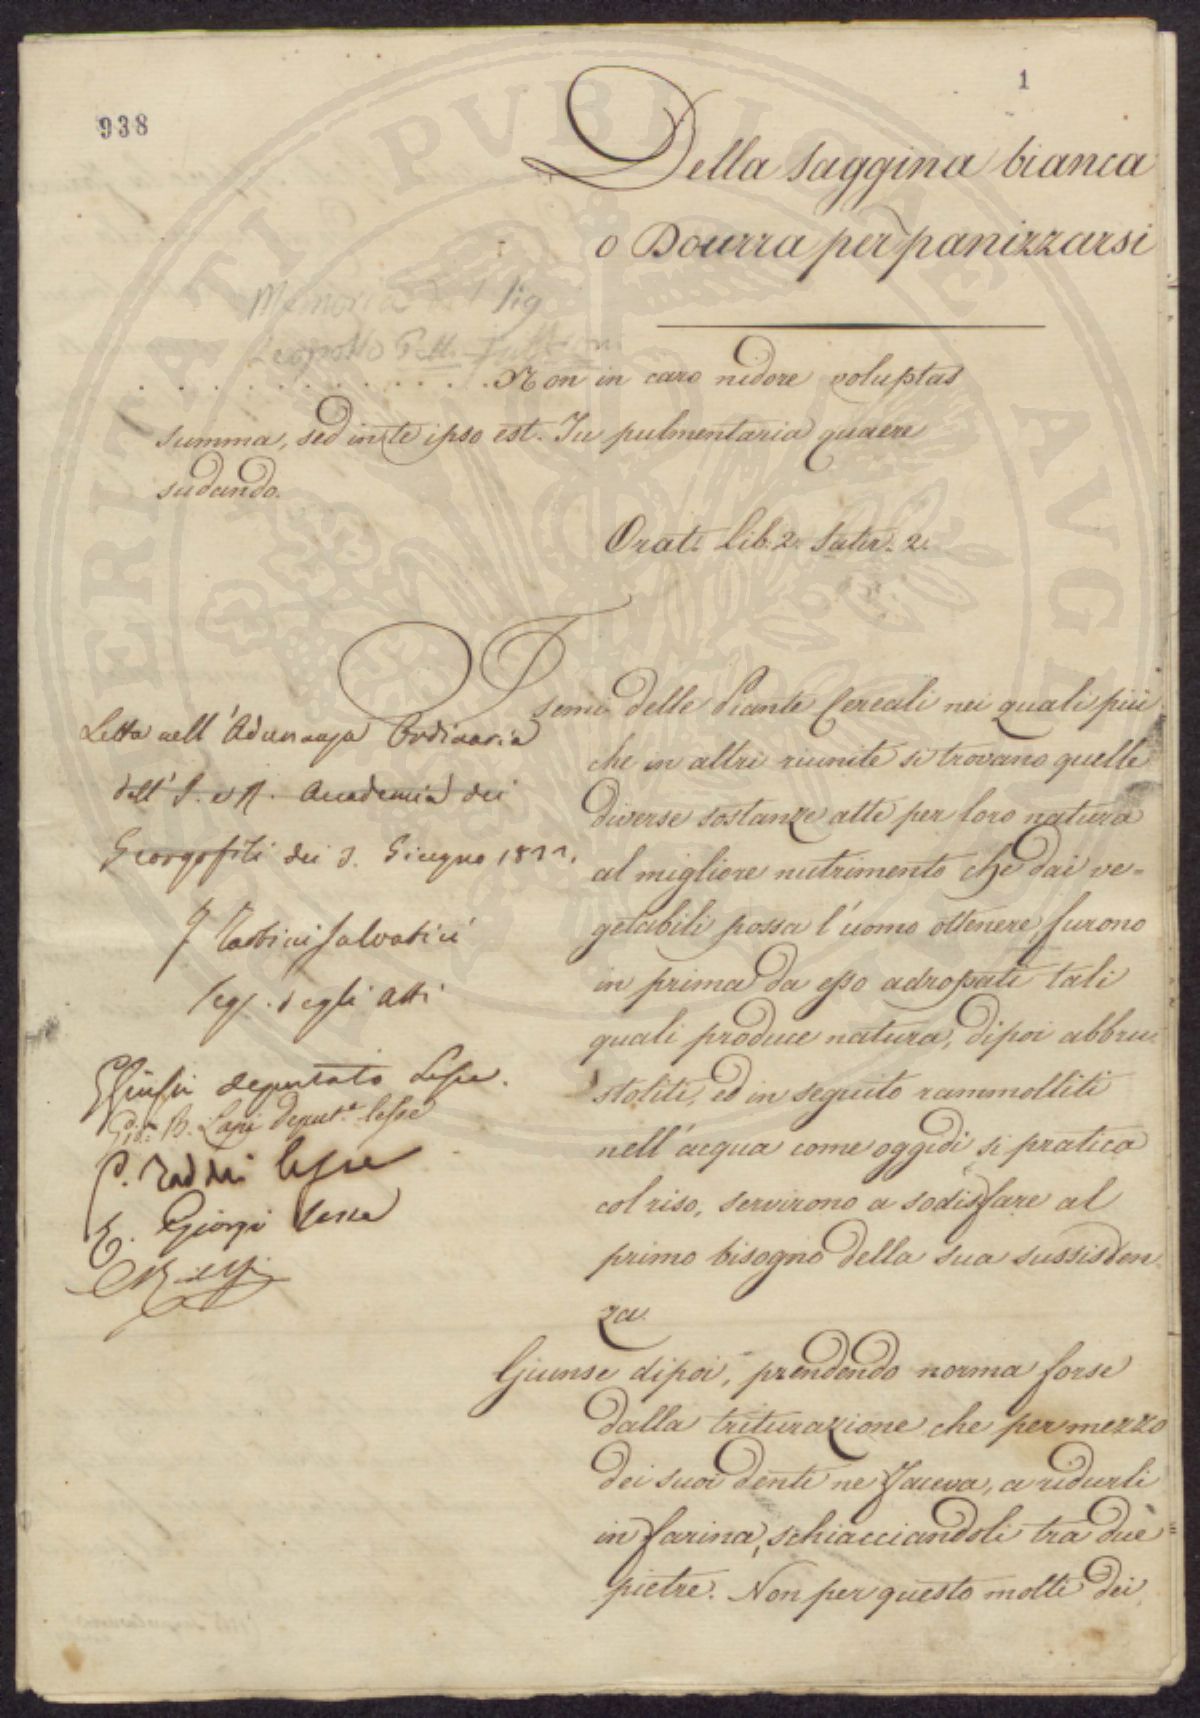 938
1
Della saggina bianca
o Dourra per panizzarsi
Memoria del Sig
Leopoldo
. . . . . . . . . . . . Non in caro nidore voluptas
summa, sed in te ipso est. Tu pulmentaria quaere
sudando.
Orat. Lib. 2. Satir. 2.
I semi delle Piante Cereali nei quali più
che in altri riunite si trovano quelle
diverse sostanze atte per loro natura
al migliore nutrimento che dai ve-
getabili possa l'uomo ottenere, furono
in prima da esso adropati tali
quali produce natura, dipoi abbru-
stoliti, ed in seguito rammolliti
nell'acqua come oggidì si pratica
col riso, servirono a sodisfare al
primo bisogno della sua sussisten
za.
Giunse dipoi, prendendo norma forse
dalla triturazione che per mezzo
dei suoi denti ne faceva, a ridurli
in farina, schiacciandoli tra due
pietre. Non per questo molti dei
Letta nell'Adunanza Ordinaria
dell'I. e R. Accademia dei
Georgofili dei 3. Giugno
Tartini Salvatici
Seg. degli Atti
deputato Lesse.
B. Lapi Deput.º lesse
Taddei lesse
E. Giorgi lesse
ERITATI PVBLICAE AVGE